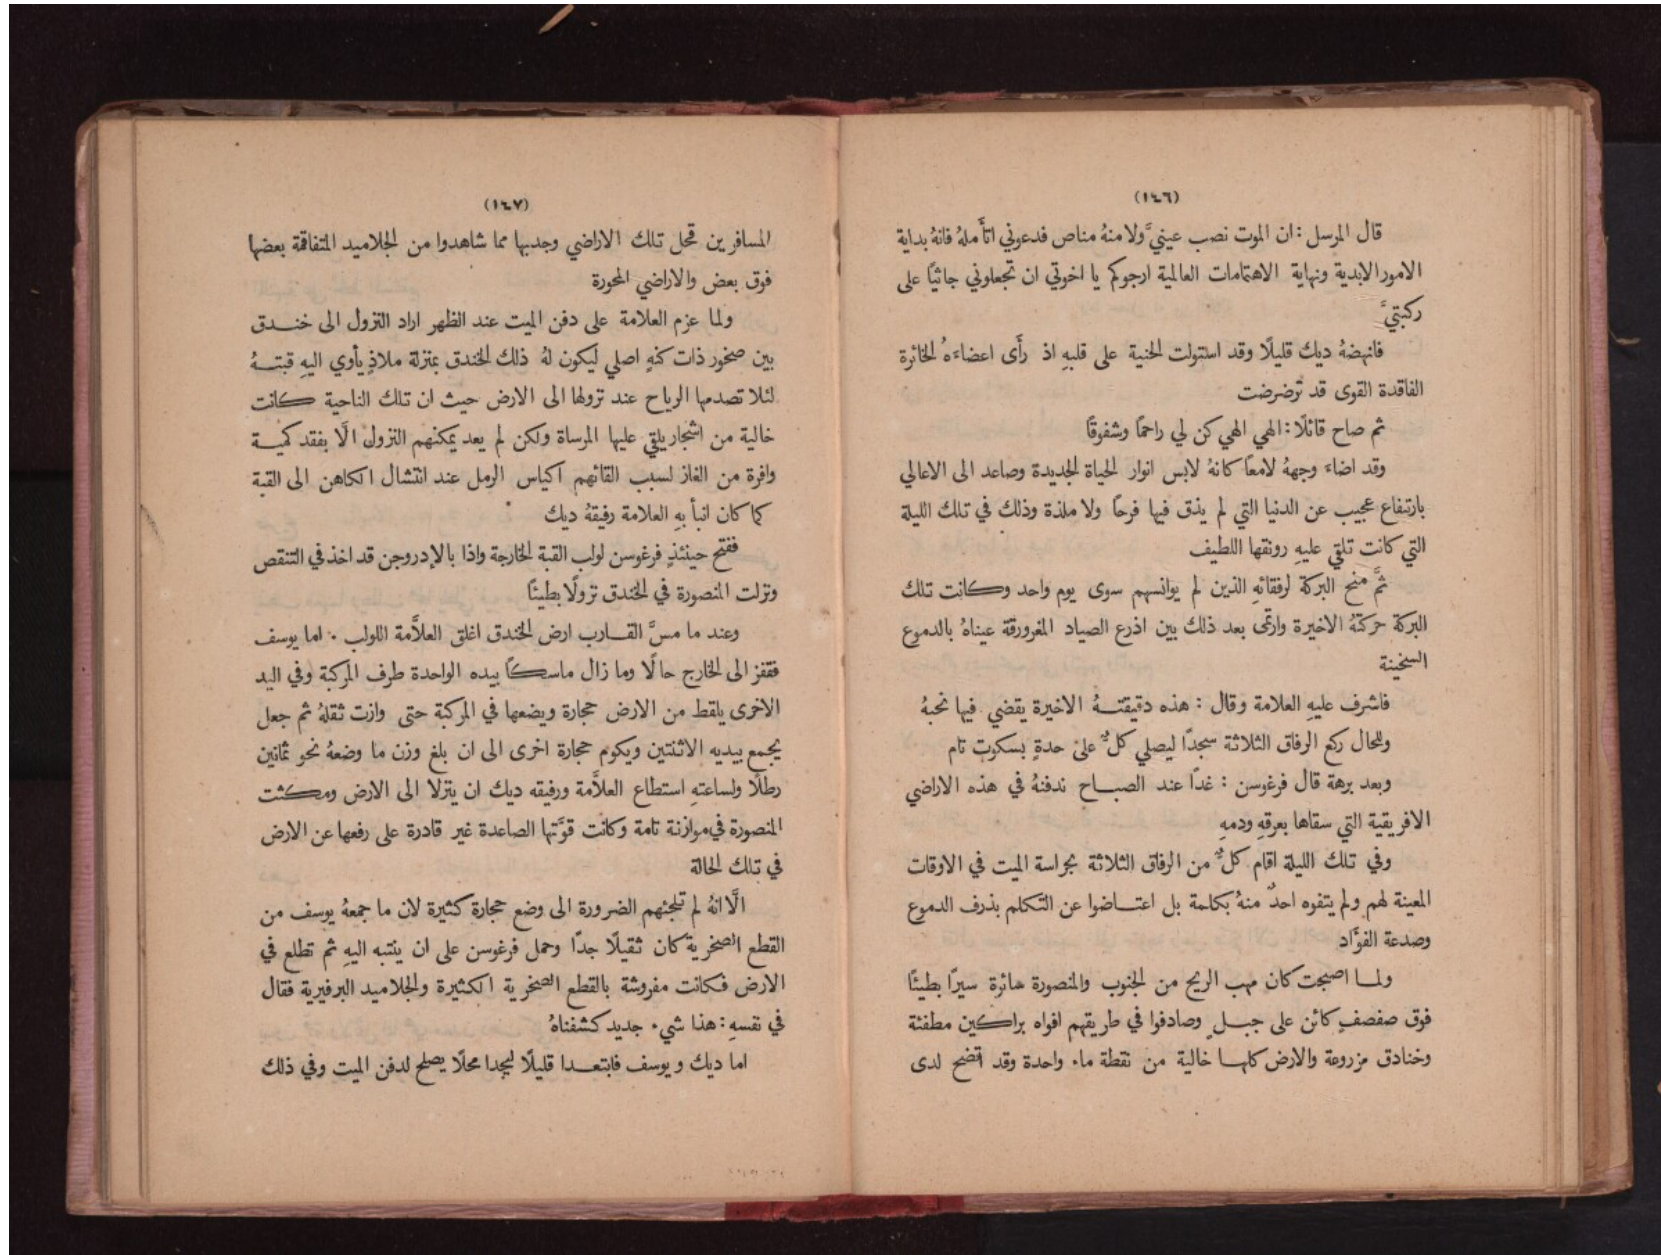 (١٤٦)
قال المرسل : ان الموت نصب عينيَّ ولا منهُ مناص فدعوني اتأَملهُ فانهُ بداية
الامور الابدية ونهاية الاهتمامات العالمية ارجوكم يا اخوتي ان تجعلوني جاثيًا على
ركبتيَّ
فانهضهُ ديك قليلًا وقد استولت الحنية على قلبهِ اذ رأَى اعضاءَهُ الخائرة
الفاقدة القوى قد ترضرضت
ثم صاح قائلًا : الهي الهي كن لي راحمًا وشفوقًا
وقد اضاءَ وجههُ لامعًا كانهُ لابس انوار الحياة الجديدة وصاعد الى الاعالي
بارتفاع عجيب عن الدنيا التي لم يذق فيها فرحًا ولا ملذة وذلك في تلك الليلة
التي كانت تلقي عليهِ رونقها اللطيف
ثمَّ منح البركة لرفقائهِ الذين لم يوانسهم سوى يوم واحد وكانت تلك
البركة حركتهُ الاخيرة وارتمى بعد ذلك بين اذرع الصياد المغرورقة عيناهُ بالدموع
السخينة
فاشرف عليهِ العلامة وقال : هذه دقيقتـهُ الاخيرة يقضي فيها نحبهُ
وللحال ركع الرفاق الثلاثة سجدًا ليصلي كلٌّ على حدةٍ بسكوت تام
وبعد برهة قال فرغوسن : غدًا عند الصبـاح ندفنهُ في هذه الاراضي
الافريقية التي سقاها بعرقهِ ودمهِ
وفي تلك الليلة اقام كلٌّ من الرفاق الثلاثة بحراسة الميت في الاوقات
المعينة لهم ولم يتفوه احدٌ منهُ بكلمة بل اعتـاضوا عن التكلم بذرف الدموع
وصدعة الفوَّاد
ولمـا اصبحت كان مهب الريح من الجنوب والمنصورة سائرة سيرًا بطيئًا
فوق صفصفٍ كائن على جبـلٍ وصادفوا في طريقهم افواه براكين مطفئة
وخنادق مزروعة والارض كلهـا خالية من نقطة ماء واحدة وقد اتضح لدى
(١٤٧)
المسافرين قحل تلك الاراضي وجدبها مما شاهدوا من الجلاميد المتفاقمة بعضها
فوق بعض والاراضي المحورة
ولما عزم العلامة على دفن الميت عند الظهر اراد النزول الى خنـدق
بين صخور ذات كنهٍ اصلي ليكون لهُ ذلك الخندق بمنزلة ملاذٍ يأوي اليهِ قبتـهُ
لئلا تصدمها الرياح عند نزولها الى الارض حيث ان تلك الناحية كانت
خالية من اشجار يلقي عليها المرساة ولكن لم يعد يمكنهم النزول الَّا بفقد كميـة
وافرة من الغاز لسبب القائهم اكياس الرمل عند انتشال الكاهن الى القبة
كما كان انبأ بهِ العلامة رفيقهُ ديك
ففتح حينئذٍ فرغوسن لولب القبة الخارجة واذا بالإدروجن قد اخذ في التنقص
ونزلت المنصورة في الخندق نزولًا بطيئًا
وعند ما مسَّ القـارب ارض الخندق اغلق العلاَّمة اللولب . اما يوسف
فقفز الى الخارج حالًا وما زال ماسكًا بيده الواحدة طرف المركبة وفي اليد
الاخرى يلقط من الارض حجارة ويضعها في المركبة حتى وازت ثقلهُ ثم جعل
يجمع بيديه الاثنتين ويكوم حجارة اخرى الى ان بلغ وزن ما وضعهُ نحو ثمانين
رطلًا ولساعتهِ استطاع العلاَّمة ورفيقه ديك ان ينزلا الى الارض ومكثت
المنصورة في موازنة تامة وكانت قوَّتها الصاعدة غير قادرة على رفعها عن الارض
في تلك الحالة
الَّا انهُ لم تلجئهم الضرورة الى وضع حجارة كثيرة لان ما جمعهُ يوسف من
القطع الصخرية كان ثقيلًا جدًا وحمل فرغوسن على ان ينتبه اليهِ ثم تطلع في
الارض فكانت مفروشة بالقطع الصخرية الكثيرة والجلاميد البرفيرية فقال
في نفسهِ : هذا شيء جديد كشفناهُ
اما ديك ويوسف فابتعـدا قليلًا ليجدا محلًا يصلح لدفن الميت وفي ذلك